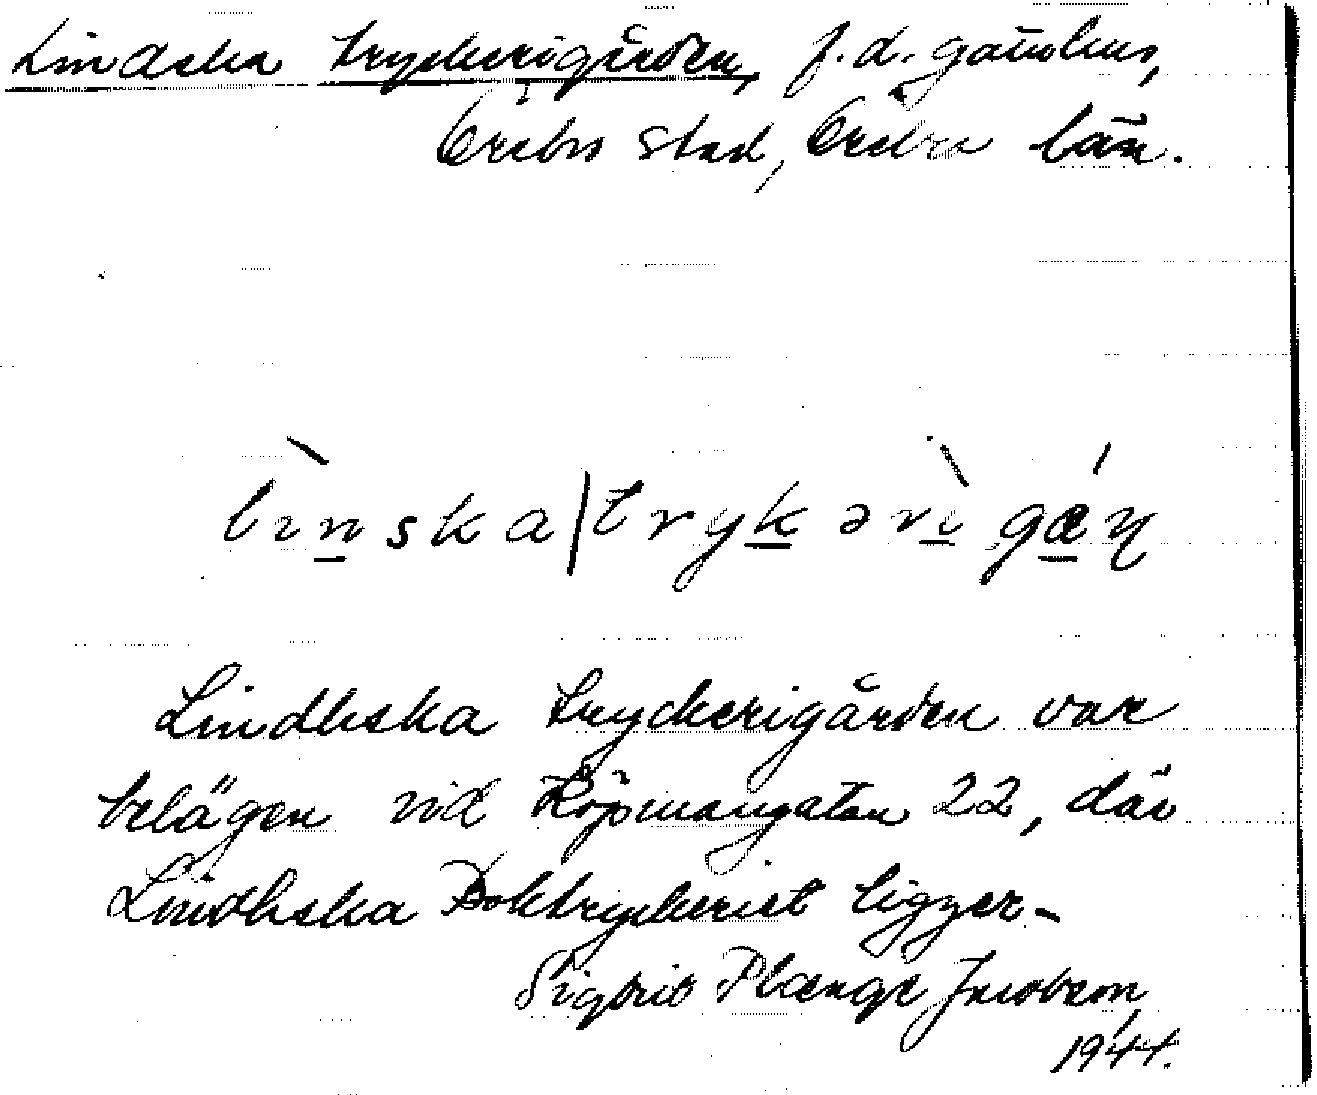 Lindska tryckerigården, f.d. gathus,
Örebro stad, Örebro län.
lìnska|trykərìgǽɳ
Lindhska tryckerigården var
belägen vid Köpmangatan 22, där
Lindhska Boktryckeriet ligger.
Sigbrit Plænge Jacobson,
1944.